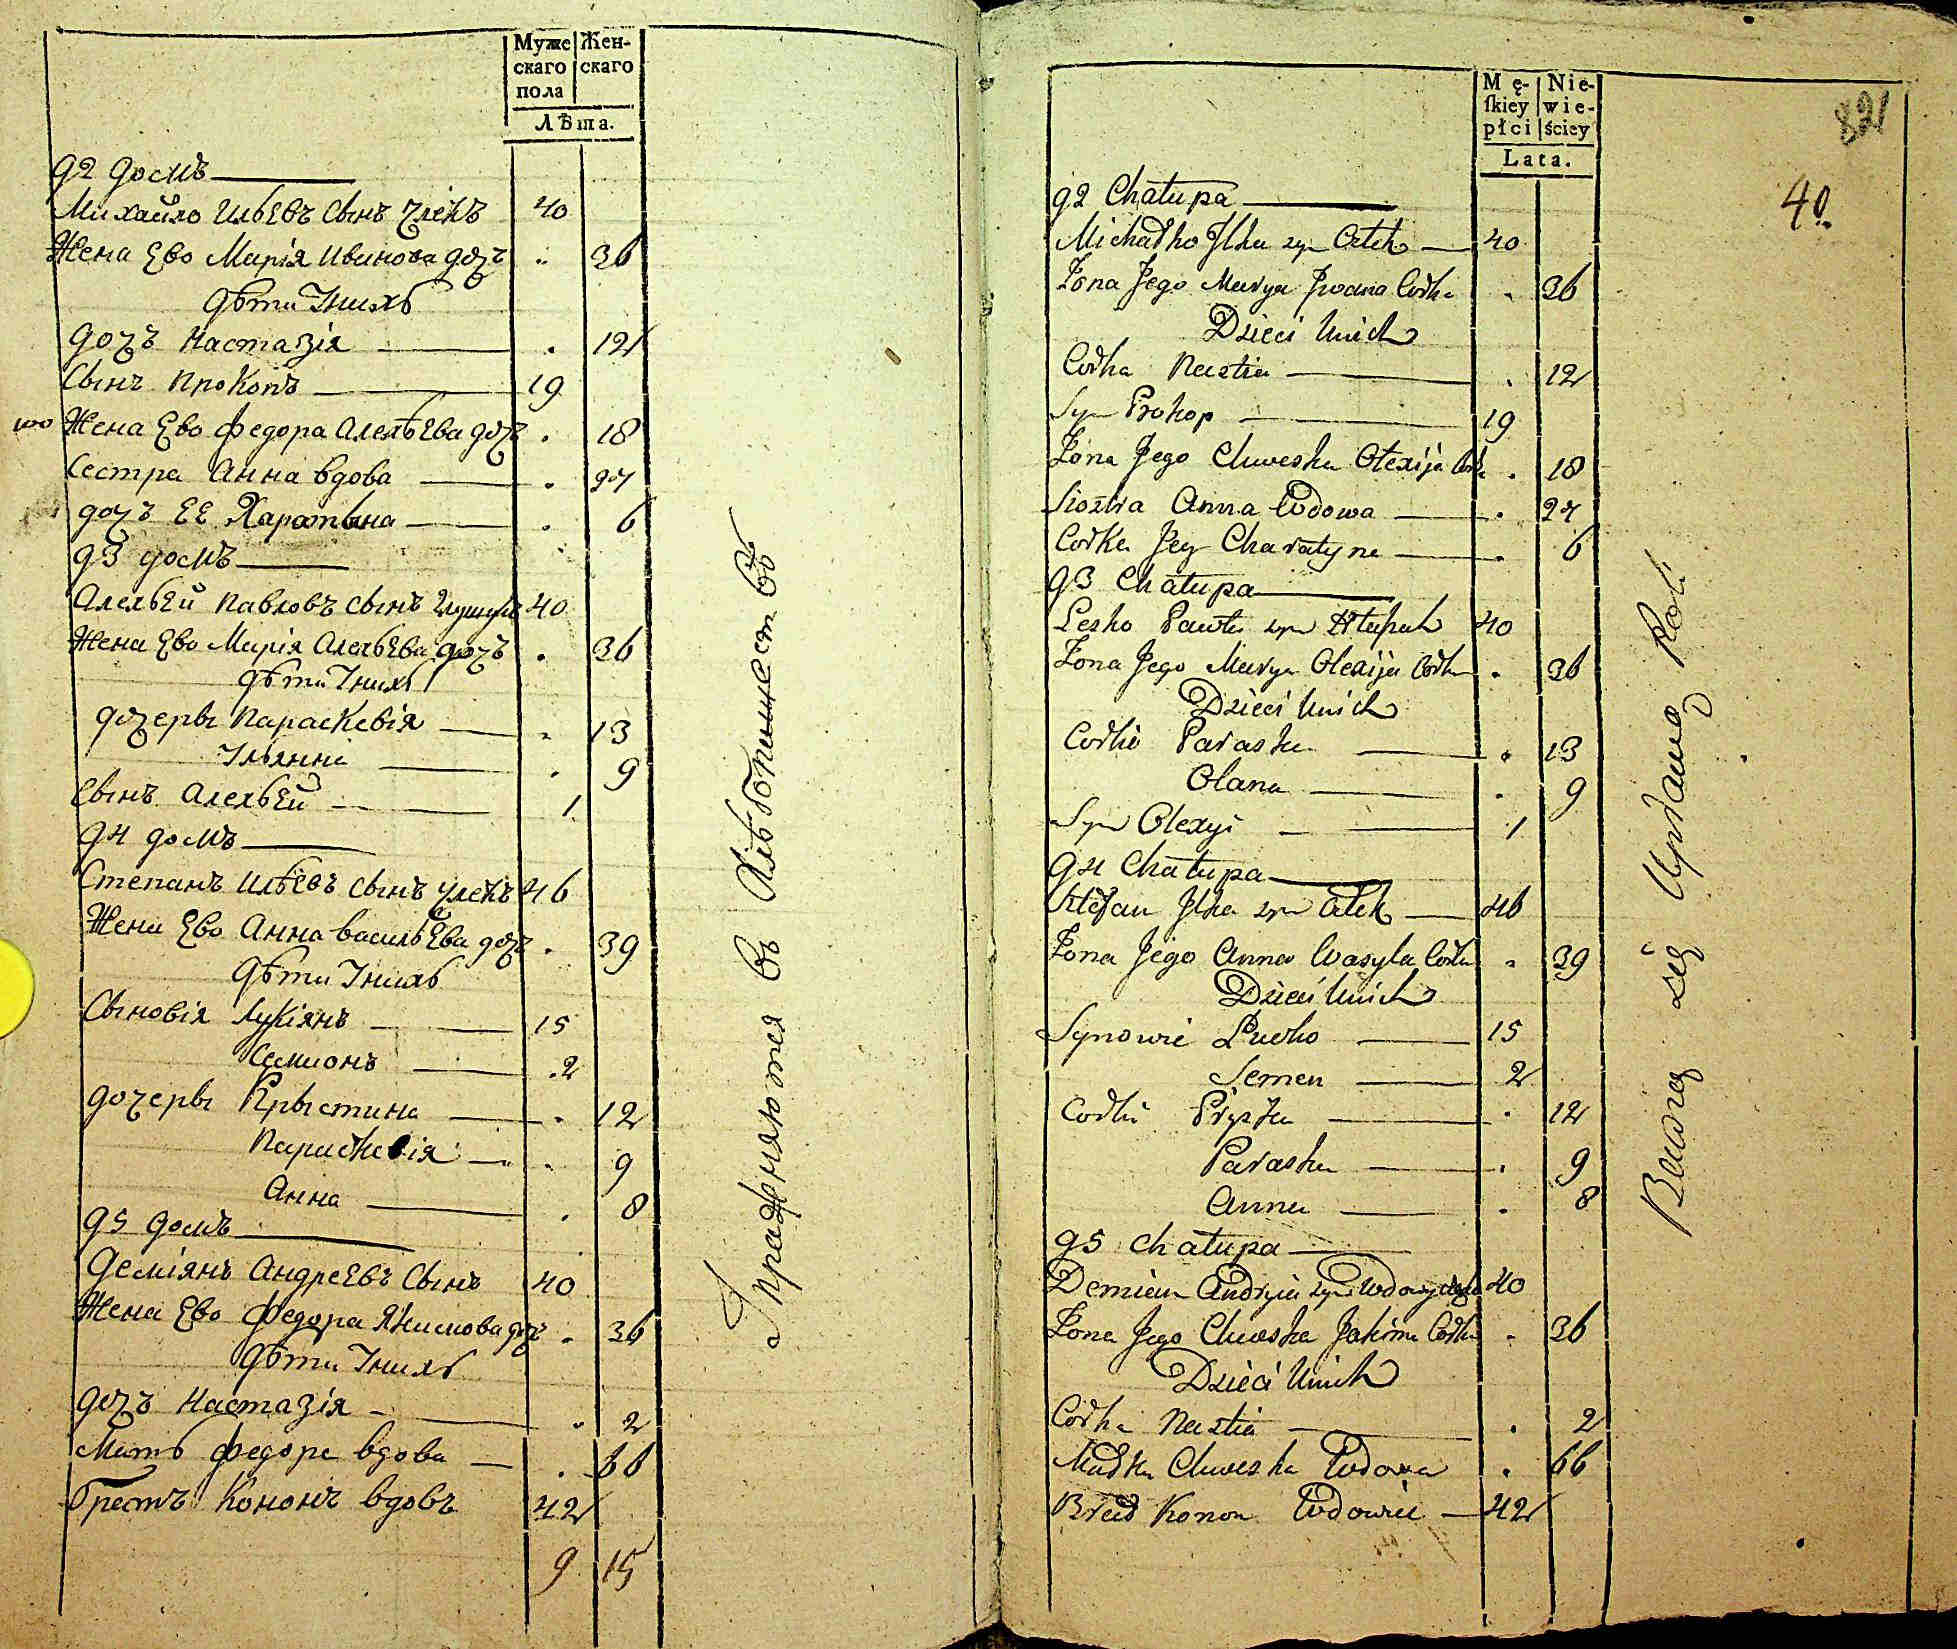 Муже Жен-
скаго скаго
пола
Лѣта.
92 домъ
Михайло Ильевъ сынъ 40
Жена Ево Марія Иванова дочъ 36
дѣти Унихъ
дочъ Настазія 12
Сынъ Прокопъ 19
Жена Ево Федора Алексѣева дочъ 18
Сестра Анна вдова 27
дочъ ЕЕ Харатына 6
93 домъ
Алексѣй Павловъ сынъ 40
Жена Ево Марія Алексѣева дочъ 36
дѣти Унихъ
дочеры Параскевія 13
Ульянна 9
Сынъ Алексѣй 1
94 домъ
Степанъ Ильевъ сынъ 46
Жена Ево Анна васильЕва дочъ 39
дѣти Унихъ
Сыновія Лукіянъ 15
Семионъ 2
дочеры Крыстина 12
Параскевія 9
Анна 8
95 домъ
Деміянъ Андреевъ Сынъ 40
Жена Ево Федора Якимова дочъ 36
дѣти Унихъ
дочъ Настазія 2
Мать Федора вдова 66
братъ Кононъ вдовъ 42
9 15
упражняются въ хлѣбопашествѣ
Mę- Nie-
ſkiey wie-
płci ściey
Lata.
821
40
92 Chałupa
Michałko Ilka syn 40
Żona Jego Marya Iwana Corka 36
Dzieci Unich
Corka Nastia 12
Syn Prokop 19
Żona Jego Chweska Olexija Corka 18
Siostra Anna Wdowa 27
Corka Jey Charatyna 6
93 Chałupa
Lesko Pawła syn 40
Żona Jego Marya Olexija Corka 36
Dzieci Unich
Corki Paraska 13
Olana 9
Syn Olexyi 1
94 Chałupa
Stefan Ilka syn 46
Żona Jego Anna Wasyla Corka 39
Dzieci Unich
Synowie 15
Semen 2
Corki 12
Paraska 9
Anna 8
95 Chałupa
Demian Andryia syn 40
Żona Jego Chweska Jakima Corka 36
Dzieci Unich
Corka Nastia 2
Matka Chweska Wdowa 66
Brat Konon Wdowiec 42
Bawią się Uprawą Roli